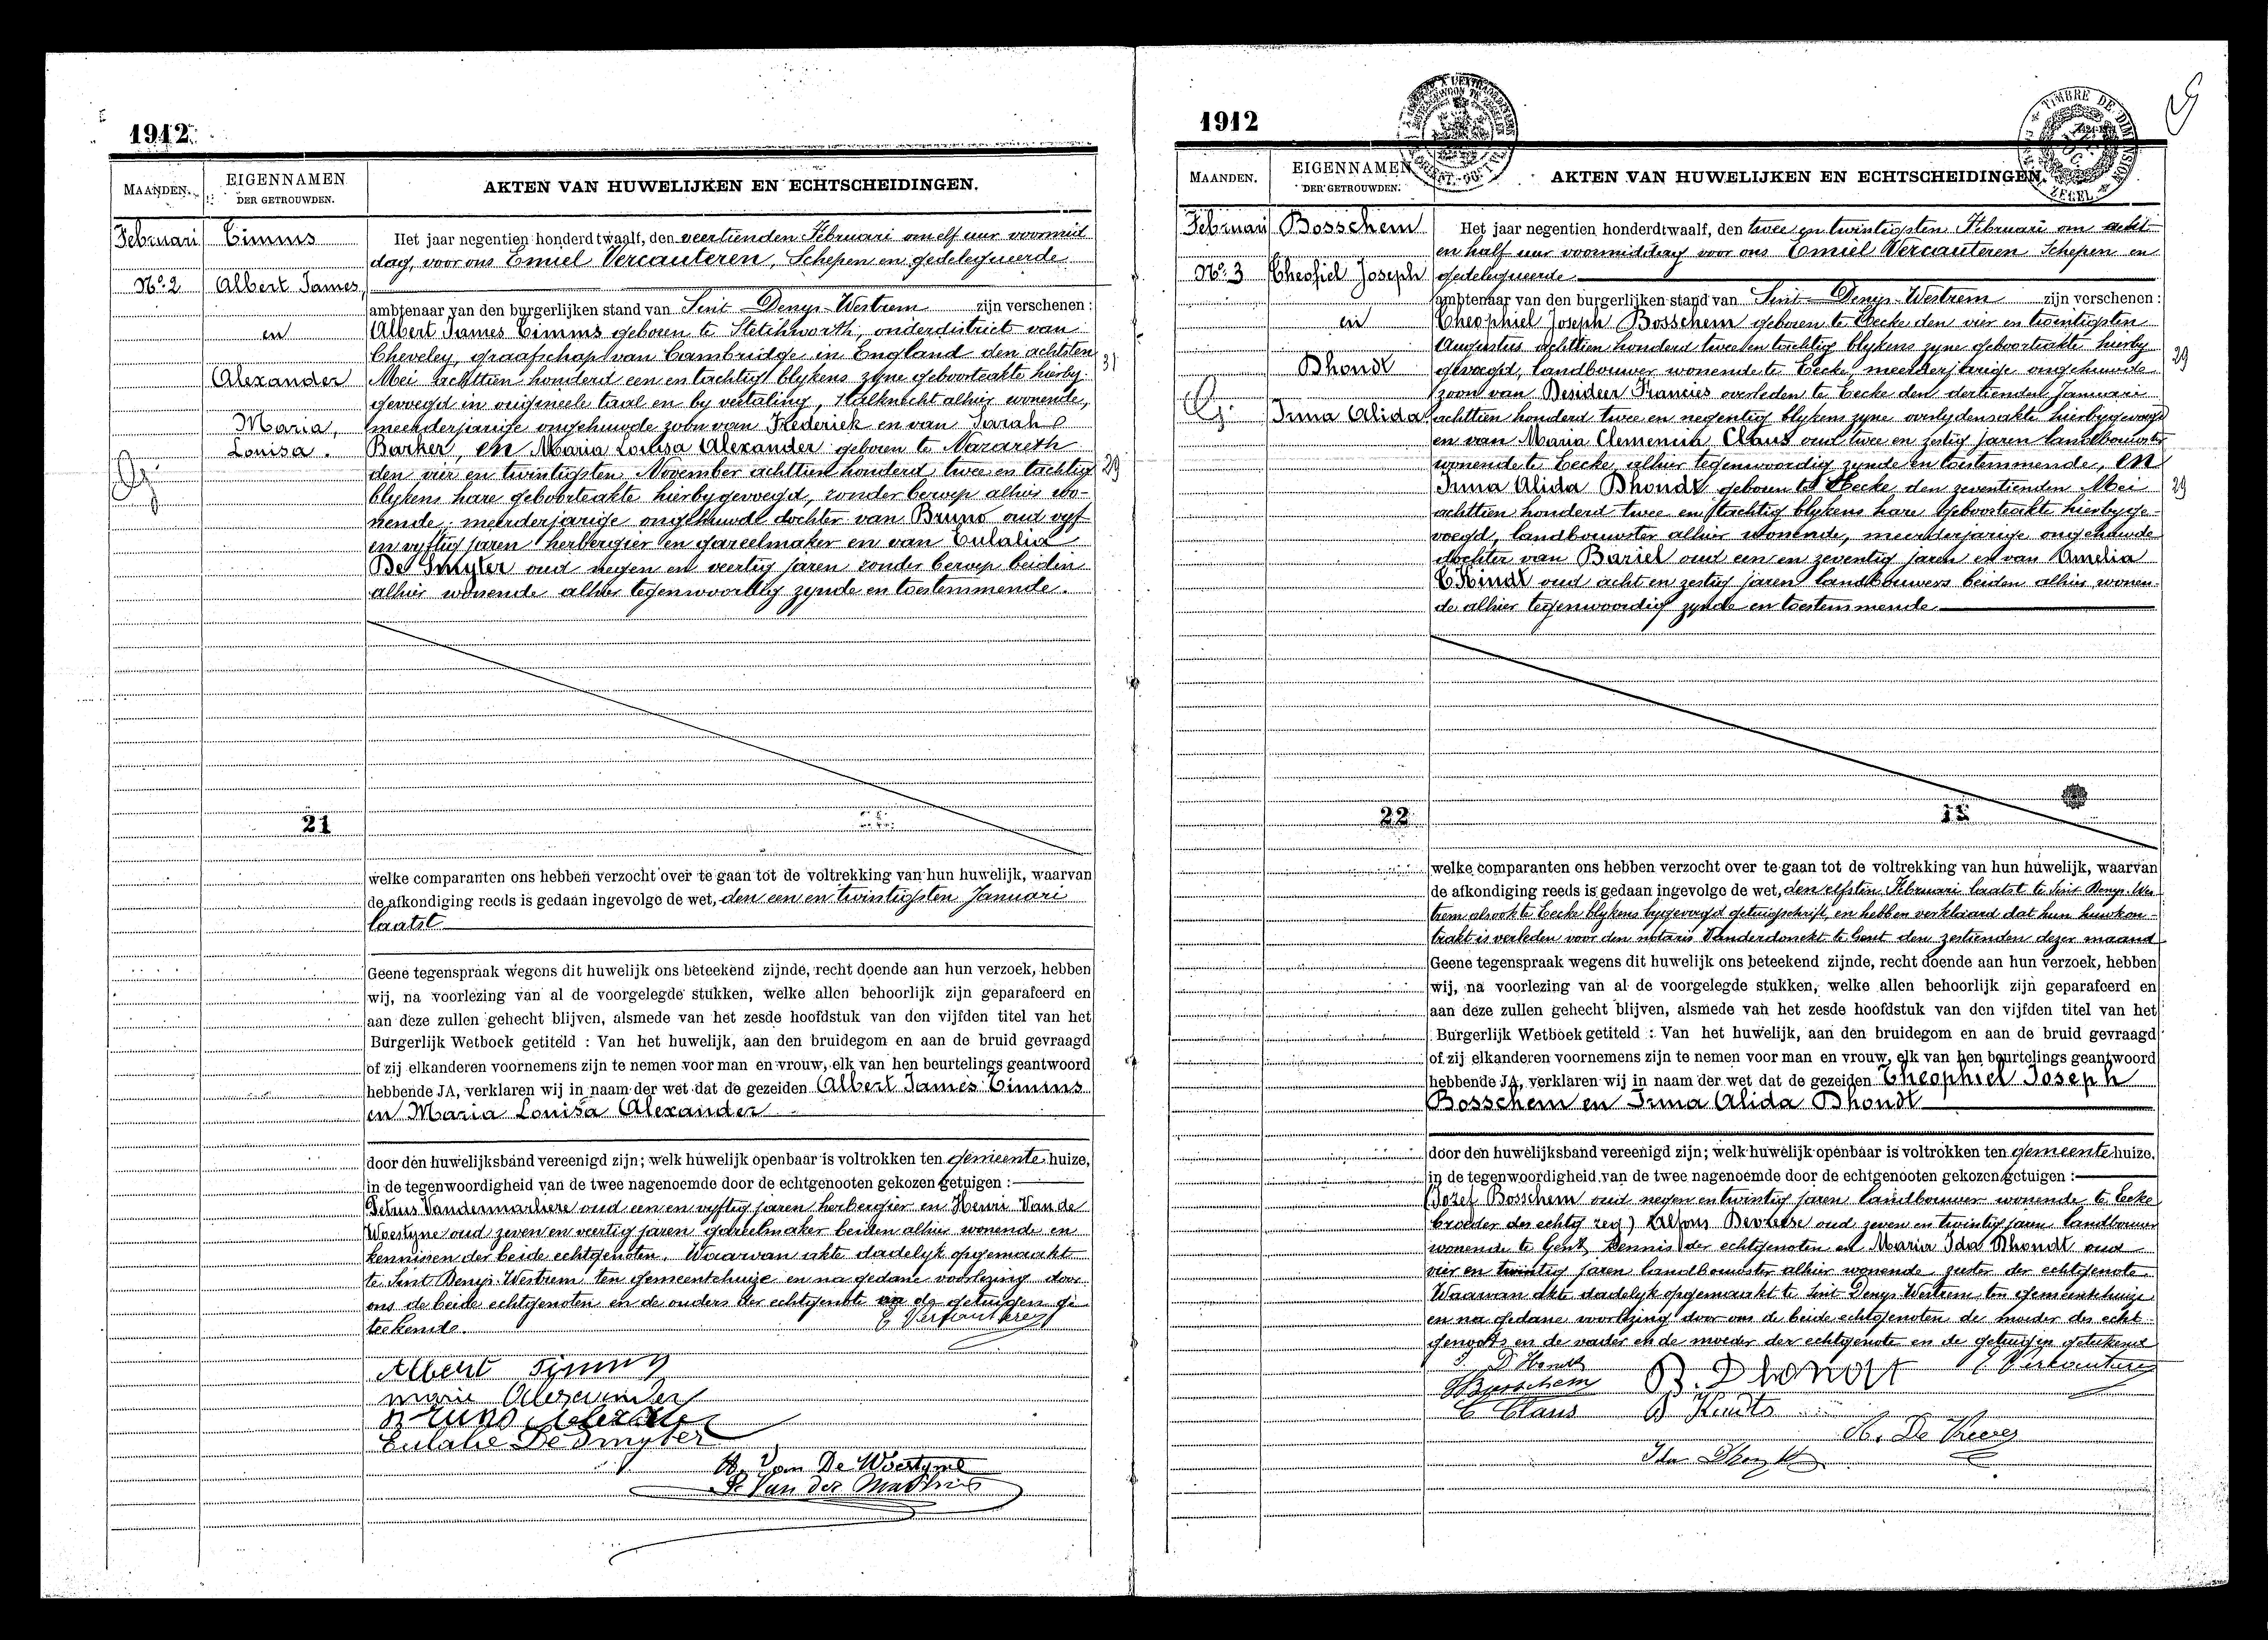 1912.
MAANDEN.
EIGENNAMEN
DER GETROUWDEN.
AKTEN VAN HUWELIJKEN EN ECHTSCHEIDINGEN.
Februari
Nº 2
Timms
Albert James,
en
Alexander
Maria,
Louisa.
Het jaar negentien honderd twaalf, den veertienden Februari om elf uur voormid
dag, voor ons Emiel Vercauteren, Schepen en gedelegueerde
ambtenaar van den burgerlijken stand van Sint Denys-Westrem zijn verschenen:
Albert James Timms geboren te Stetchworth, onderdistrict van
Cheveley, graafschap van Cambridge in England den achtsten
Mei achttien honderd een en tachtig blykens zyne geboorteakte hierby
31
gevoegd in origineele taal en by vertaling, stalknecht alhier wonende,
meerderjarige ongehuwde zoon van Frederick en van Sarah
Barker, en Maria Louisa Alexander geboren te Nazareth
den vier en twintigsten November achttien honderd twee en tachtig
29
blykens hare geboorteakte hierbygevoegd, zonder beroep alhier wo-
nende, meerderjarige ongehuwde dochter van Bruno oud vyf
en vyftig jaren herbergier en gareelmaker en van Eulalia
De Smyter oud negen en veertig jaren zonder beroep beiden
alhier wonende alhier tegenwoordig zynde en toestemmende.
21
welke comparanten ons hebben verzocht over te gaan tot de voltrekking van hun huwelijk, waarvan
de afkondiging reeds is gedaan ingevolge de wet, den een en twintigsten Januari
laatst
Geene tegenspraak wegens dit huwelijk ons beteekend zijnde, recht doende aan hun verzoek, hebben
wij, na voorlezing van al de voorgelegde stukken, welke allen behoorlijk zijn geparafeerd en
aan deze zullen gehecht blijven, alsmede van het zesde hoofdstuk van den vijfden titel van het
Burgerlijk Wetboek getiteld : Van het huwelijk, aan den bruidegom en aan de bruid gevraagd
of zij elkanderen voornemens zijn te nemen voor man en vrouw, elk van hen beurtelings geantwoord
hebbende JA, verklaren wij in naam der wet dat de gezeiden Albert James Timms
en Maria Louisa Alexander
door den huwelijksband vereenigd zijn; welk huwelijk openbaar is voltrokken ten gemeente huize,
in de tegenwoordigheid van de twee nagenoemde door de echtgenooten gekozen getuigen :
Petrus Vandermarliere oud een en vyftig jaren herbergier en Henri Van de
Woestyne oud zeven en veertig jaren gareelmaker beiden alhier wonende en
kennissen der beide echtgenoten. Waarvan akte dadelyk opgemaakt
te Sint Denys-Westrem ten gemeentehuize en na gedane voorlezing door
ons de beide echtgenoten en de ouders der echtgenote en de getuigen ge
teekend.
E Vercauteren
Albert Timms
Marie Alexander
Bruno Alexander
Eulalie De Smyter
H. Van De Woestyne
P. Van der
1912
MAANDEN.
EIGENNAMEN
DER GETROUWDEN.
AKTEN VAN HUWELIJKEN EN ECHTSCHEIDINGEN.
TIMBRE DE DIMENSION
ZEGEL
Februari
Nº 3
Bosschem
Theofiel Joseph
en
Dhondt
Irma Alida
Het jaar negentien honderd twaalf, den twee en twintigsten Februari om acht
en half uur voormiddag voor ons Emiel Vercauteren Schepen en
gedelegueerde
ambtenaar van den burgerlijken stand van Sint-Denys-Westrem zijn verschenen:
Theophiel Joseph Bosschem geboren te Eecke den vier en twintigsten
Augustus achttien honderd twee en tachtig blykens zyne geboorteakte hierby
29
gevoegd, landbouwer wonende te Eecke, meerderjarige ongehuwde
zoon van Desideer Francies overleden te Eecke den dertienden Januari
achttien honderd twee en negentig blykens zyne overlydensakte hierbygevoegd
en van Maria Clemencia Claus oud twee en zestig jaren landbouwster
wonende te Eecke alhier tegenwoordig zynde en toestemmende, en
Irma Alida Dhondt geboren te Eecke den zeventienden Mei
29
achttien honderd twee en tachtig blykens hare geboorteakte hierbyge-
voegd, landbouwster alhier wonende, meerderjarige ongehuwde
dochter van Bariel oud een en zeventig jaren en van Amelia
T'Kindt oud acht en zestig jaren landbouwers beiden alhier wonen-
de alhier tegenwoordig zynde en toestemmende
22
welke comparanten ons hebben verzocht over te gaan tot de voltrekking van hun huwelijk, waarvan
de afkondiging reeds is gedaan ingevolge de wet, den elfsten Februari laatst te Sint Denys-Wes-
trem alsook te Eecke blykens bygevoegd getuigschrift, en hebben verklaard dat hun huwkon-
trakt is verleden voor den notaris Vanderdonckt te Gent den zestienden dezer maand
Geene tegenspraak wegens dit huwelijk ons beteekend zijnde, recht doende aan hun verzoek, hebben
wij, na voorlezing van al de voorgelegde stukken, welke allen behoorlijk zijn geparafeerd en
aan deze zullen gehecht blijven, alsmede van het zesde hoofdstuk van den vijfden titel van het
Burgerlijk Wetboek getiteld : Van het huwelijk, aan den bruidegom en aan de bruid gevraagd
of zij elkanderen voornemens zijn te nemen voor man en vrouw, elk van hen beurtelings geantwoord
hebbende JA, verklaren wij in naam der wet dat de gezeiden Theophiel Joseph
Bosschem en Irma Alida Dhondt
door den huwelijksband vereenigd zijn; welk huwelijk openbaar is voltrokken ten gemeente huize,
in de tegenwoordigheid van de twee nagenoemde door de echtgenooten gekozen getuigen :
(Jozef Bosschem oud negen en twintig jaren landbouwer wonende te Eecke
broeder des echtg reg) Alfons oud zeven en twintig jaren landbouwer
wonende te Gent kennis der echtgenoten en Maria Ida Dhondt oud
vier en twintig jaren landbouwster alhier wonende zuster der echtgenote.
Waarvan akte dadelyk opgemaakt te Sint Denys Westrem ten gemeentehuize
en na gedane voorlezing door ons de beide echtgenoten de moeder des echt-
genoots en de vader en de moeder der echtgenote en de getuigen geteekend
I. D'Hondt
E Vercauteren
Bosschem
B. Dhondt
C Claus
Ida Dhondt